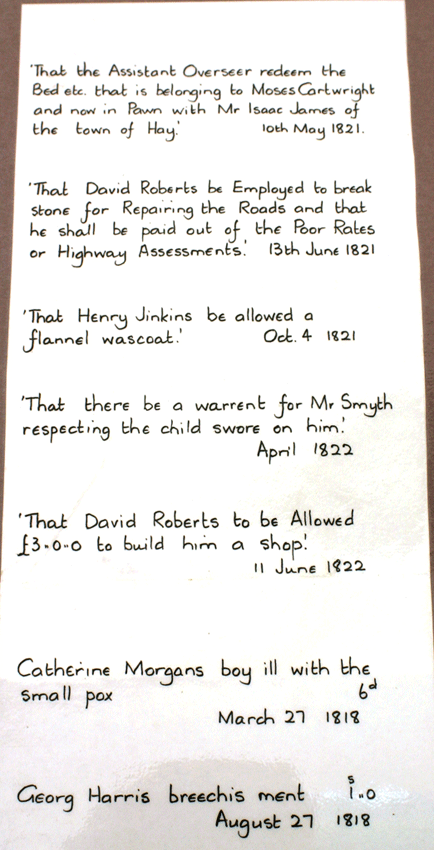 'That the Assistant Overseer redeem the
Bed etc. that is belonging to Moses Cartwright
and now in Pawn with Mr Isaac James of
the town of Hay.' 10th May 1821.
'That David Roberts be Employed to break
stone for Repairing the Roads and that
he shall be paid out of the Poor Rates
or Highway Assessments.' 13th June 1821
'That Henry Jinkins be allowed a
flannel wascoat.' Oct. 4 1821
'That there be a warrent for Mr Smyth
respecting the child swore on him.'
April 1822
'That David Roberts to be Allowed
£3"0"0 to build him a shop.'
11 June 1822
Catherine Morgans boy ill with the
small pox 6d
March 27 1818
Georg Harris breechis ment 1s"0
August 27 1818